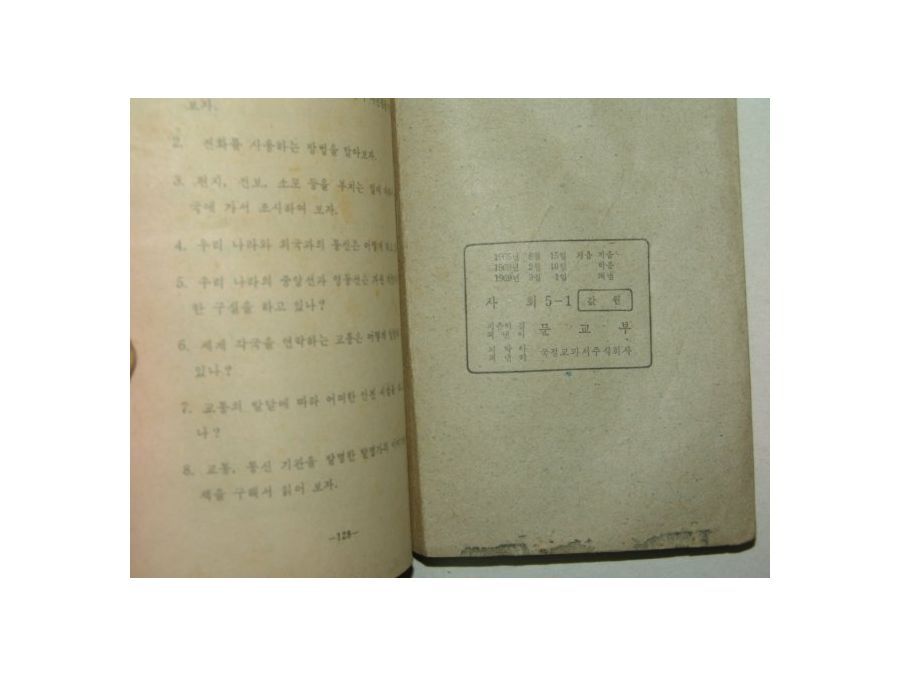 보자.
2. 전화를 사용하는 방법을 알아보자.
3. 편지, 전보, 소포 등을 부치는 일에
국에 가서 조사하여 보자.
4. 우리 나라와 외국과의 통신은 어떻게
5. 우리 나라의 중앙선과 영동선은
한 구실을 하고 있나?
6. 세계 각국을 연락하는 교통은 어떻게
있나?
7. 교통의 발달에 따라 어떠한 안전 시설을
나?
8. 교통, 통신 기관을 발명한 발명가의
책을 구해서 읽어 보자.
—128—
1965년 8월 15일 처음 지음
1969년 2월 10일 박음
1969년 3월 1일 펴냄
사 회 5-1 값 원
지은이 겸 펴낸이 문 교 부
국정교과서주식회사